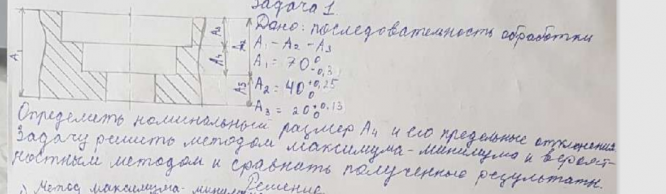 Задача 1
Дано: последовательность обработки
A₁ - A₂ - A₃
A₁ = 70⁰₋₀,₃
A₂ = 40⁺⁰,²⁵₀
A₃ = 20⁺⁰,¹³₀
A₁
A₄
A₃
Определить номинальный размер A₄ и его предельные отклонения
Задачу решить методом максимума-минимума и вероят-
ностным методом и сравнить полученные результаты.
Решение
Метод максимума-